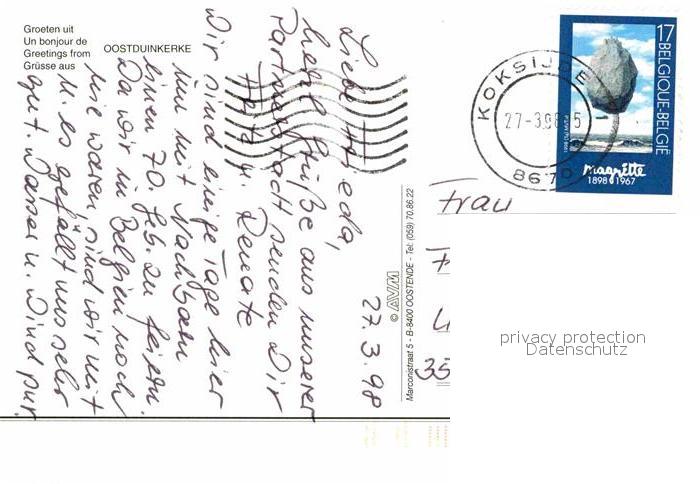 Groeten uit
Un bonjour de
Greetings from
Grüsse aus
OOSTDUINKERKE
27.3.98
Liebe
herzl. Grüße aus unserer
Partnerstadt senden Dir
u. Renate
Wir sind einige Tage hier
um mit Nachbarn
einen 70. Geb. zu feiern.
Da wir in Belgien noch
nie waren, sind wir mit
u. es gefällt uns sehr
gut. Wasser u. Wind pur
© AVM
Marconistraat 5 - B-8400 OOSTENDE - Tel: (059) 70.86.22
17
BELGIQUE-BELGIË
magritte
1898 1967
KOKSIJDE 1
27-3.98
8670
Frau
35
privacy protection
Datenschutz